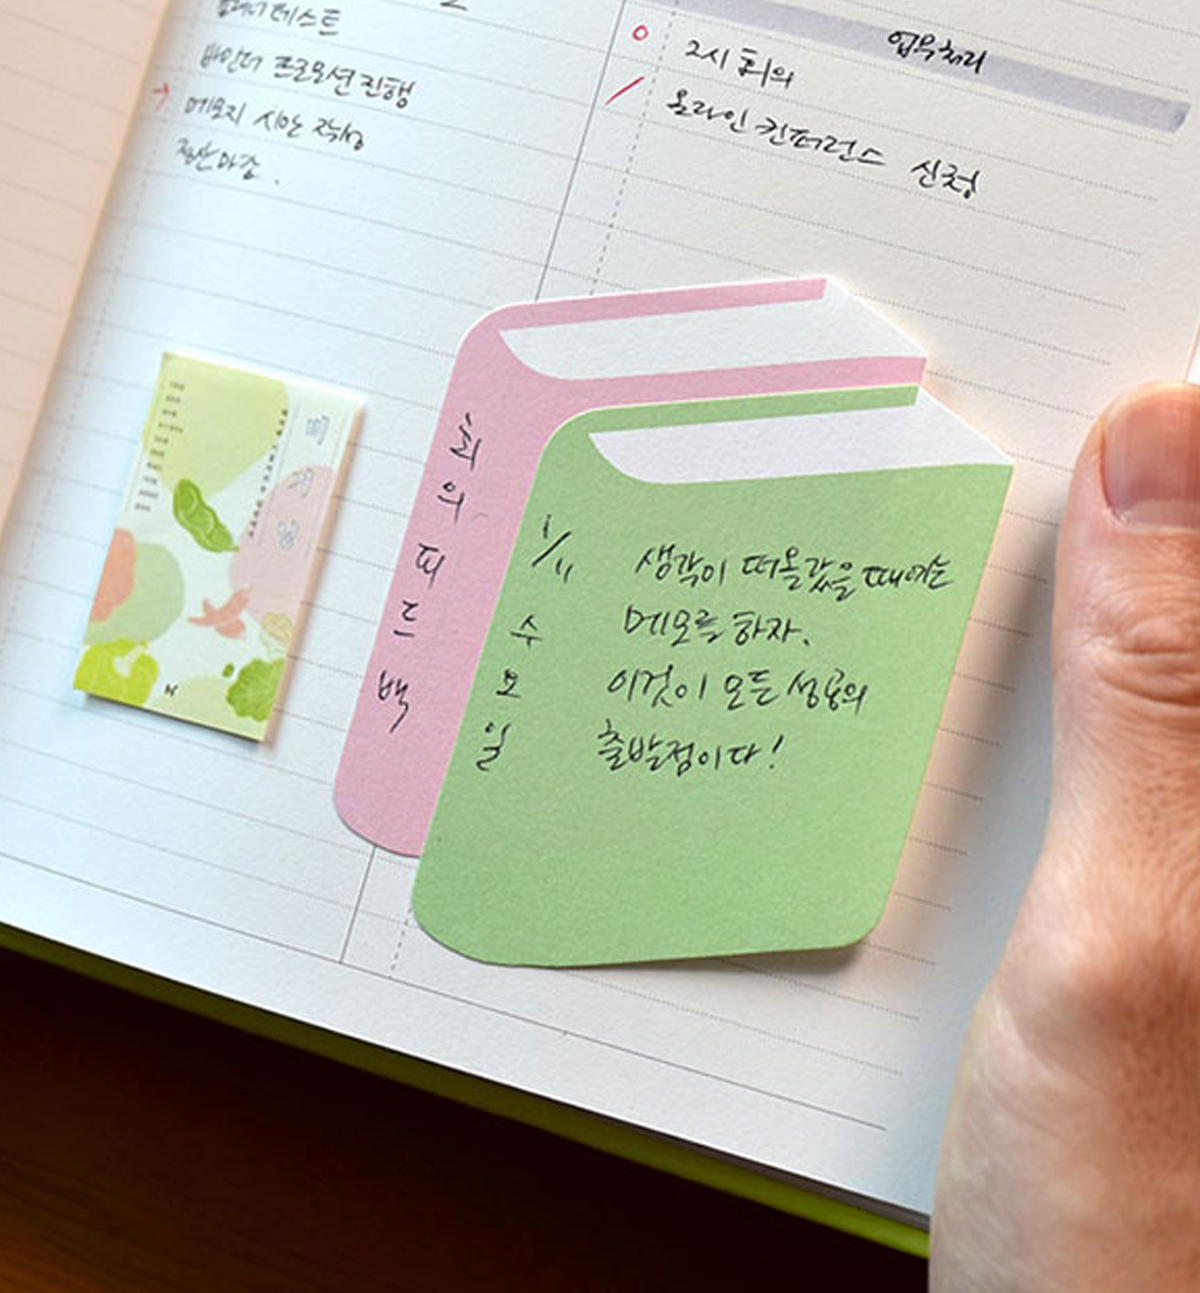 테스트
바인더 프로모션 진행
메모지 시안 작성
정산마감.
업무처리
2시 회의
온라인 컨퍼런스 신청
회의피드백
1/11
수모일
생각이 떠올랐을 때에는
메모를 하자.
이것이 모든 성공의
출발점이다!